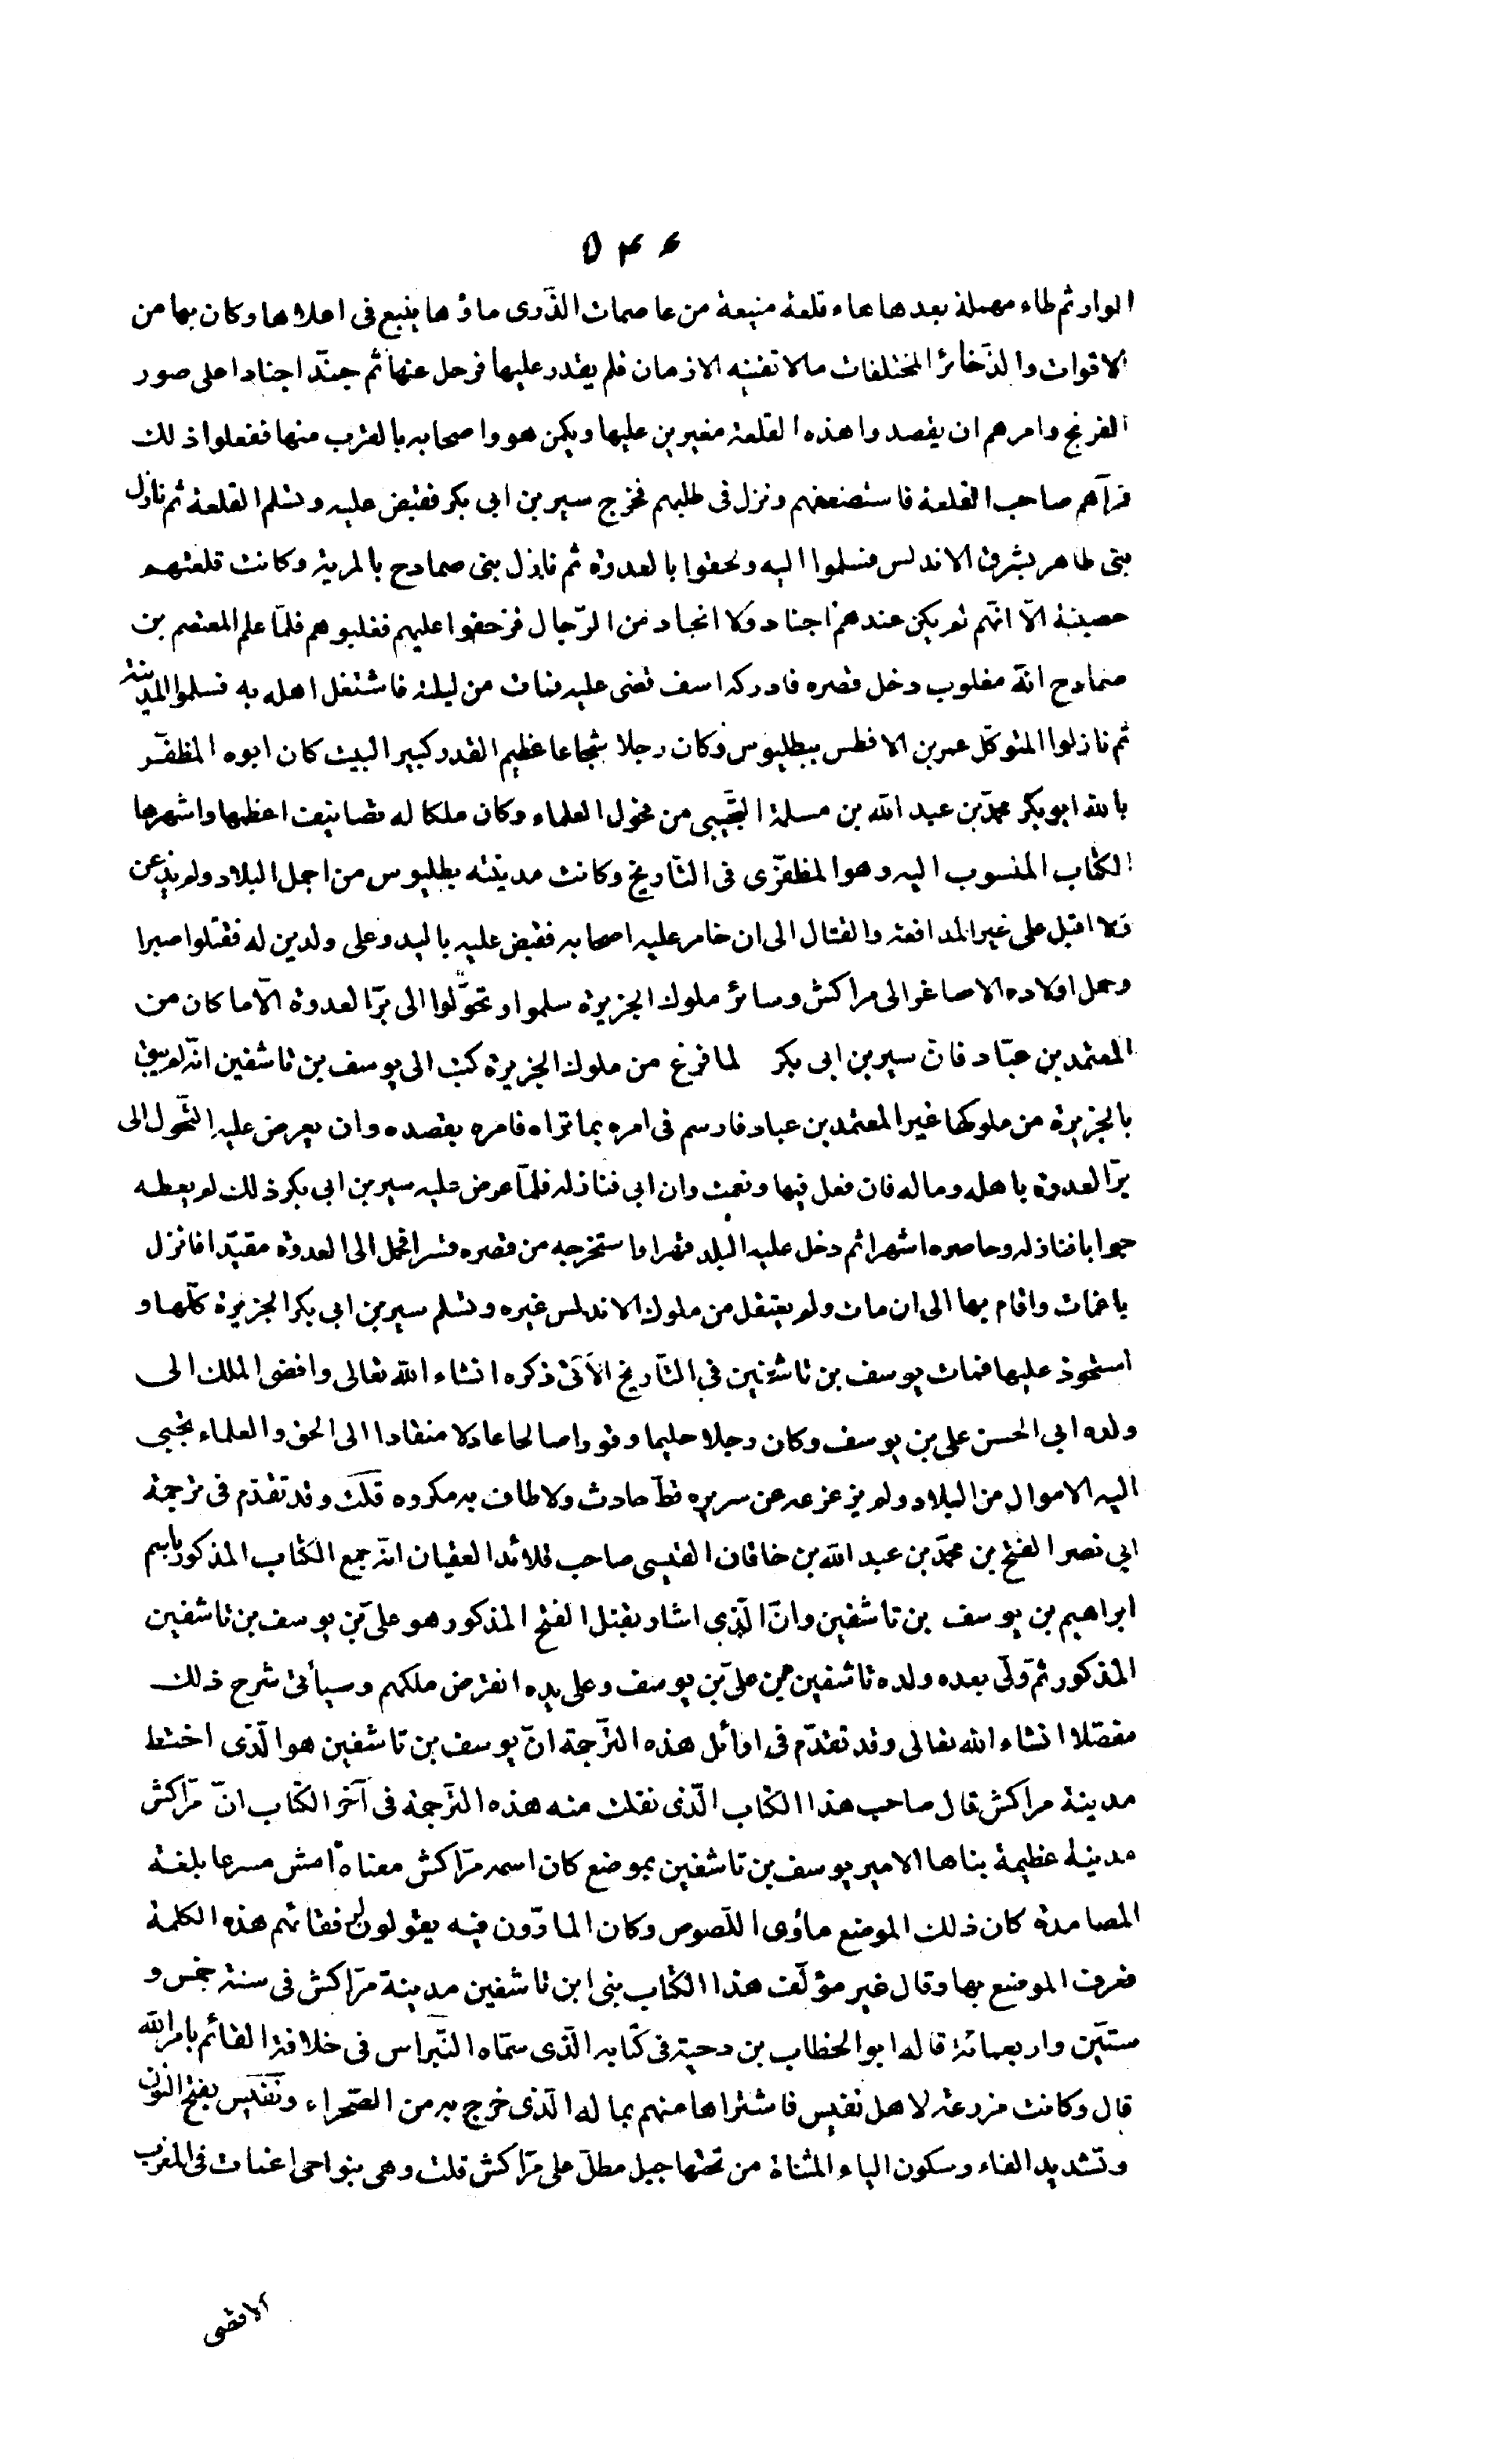 ۵۴۶
الواو ثم طاء مهملة بعدها هاء قلعة منيعة من عاصمات الذّرى ماؤها ينبع فى اعلاها وكان بها من
الاقوات والذّخائر المختلفات مالا تفنيه الازمان فلم يقدر عليها فرحل عنها ثم جنّد اجنادا على صور
الفرنج وامرهم ان يقصدوا هذه القلعة مغيرين عليها ويكمن هو واصحابه بالقرب منها ففعلوا ذلك
فرآهم صاحب القلعة فاستضعفهم ونزل فى طلبهم فخرج سير بن ابى بكر فقبض عليه وتسلم القلعة ثم نازل
بنى طاهر بشرق الاندلس فسلموا اليه ولحقوا بالعدوة ثم نازل بنى صمادح بالمرية وكانت قلعتهم
حصينة الّا انهّم لم يكن عندهم اجناد ولا انجاد من الرّجال فزحفوا عليهم فغلبوهم فلمّا علم المعتصم بن
صمادح انّه مغلوب دخل قصره فادركه اسف قضى عليه فمات من ليلته فاشتغل اهله به فسلموا المدينة
ثم نازلوا المتوكّل عمر بن الافطس ببطليوس وكان رجلا شجاعا عظيم القدر كبير البيت كان ابوه المظفّر
بالله ابو بكر محمّد بن عبد الله بن مسلمة التجّيبى من فحول العلماء وكان ملكا له تصانيف اعظمها واشهرها
الكتاب المنسوب اليه وهو المظفّرى فى التّاريخ وكانت مدينته بطليوس من اجمل البلاد ولم يذعن
ولا اقبل على غير المدافعة والقتال الى ان خامر عليه اصحابه فقبض عليه باليد وعلى ولدين له فقتلوا صبرا
وحمل اولاده الاصاغر الى مراكش وسائر ملوك الجزيرة سلموا وتحوّلوا الى برّ العدوة الّا ما كان من
المعتمد بن عبّاد فانّ سير بن ابى بكر لما فرغ من ملوك الجزيرة كتب الى يوسف بن تاشفين انّه لم يبق
بالجزيرة من ملوكها غير المعتمد بن عباد فارسم فى امره بما تراه فامره بقصده وان يعرض عليه التّحول الى
برّ العدوة باهله وماله فان فعل فبها ونعمت وان ابى فنازله فلمّا عرض عليه سير بن ابى بكر ذلك لم يعطه
جوابا فنازله وحاصره اشهرا ثم دخل عليه البلد قهرا واستخرجه من قصره قسرا فحمل الى العدوة مقيّدا فانزل
باغمات واقام بها الى ان مات ولم يعتقل من ملوك الاندلس غيره وتسلم سير بن ابى بكر الجزيرة كلّها و
استحوذ عليها فمات يوسف بن تاشفين فى التّاريخ الآتى ذكره انشاء الله تعالى وافضى الملك الى
ولده ابى الحسن على بن يوسف وكان رجلا حليما وقورا صالحا عادلا منقادا الى الحق والعلماء تجبى
اليه الاموال من البلاد ولم يزعزعه عن سريره قطّ حادث ولا طاف به مكروه قلت وقد تقدّم فى ترجمة
ابى نصر الفتح بن محمّد بن عبد الله بن خاقان القيسى صاحب قلائد العقيان انّه جمع الكتاب المذكور باسم
ابراهيم بن يوسف بن تاشفين وانّ الّذى اشار بقتل الفتح المذكور هو علىّ بن يوسف بن تاشفين
المذكور ثمّ ولّى بعده ولده تاشفين بن علىّ بن يوسف وعلى يده انقرض ملكهم وسيأتى شرح ذلك
مفصّلا انشاء الله تعالى وقد تقدّم فى اوائل هذه التّرجمة انّ يوسف بن تاشفين هو الّذى اختط
مدينة مراكش قال صاحب هذا الكتاب الّذى نقلت منه هذه التّرجمة فى آخر الكتاب انّ مرّاكش
مدينة عظيمة بناها الامير يوسف بن تاشفين بموضع كان اسمه مرّاكش معناه امش مسرعا بلغة
المصامدة كان ذلك الموضع مأوى اللّصوص وكان المارّون فيه يقولون لرفقائهم هذه الكلمة
فعرف الموضع بها وقال غير مؤلّف هذا الكتاب بنى ابن تاشفين مدينة مرّاكش فى سنة خمس و
ستّين واربعمائة قاله ابو الخطاب بن دحية فى كتابه الّذى سمّاه النّبراس فى خلافة القائم بامر الله
قال وكانت مزرعة لاهل نفيس فاشتراها منهم بماله الّذى خرج به من الصّحراء ونفّيس بفتح النون
وتشديد الفاء وسكون الياء المثناة من تحتها جبل مطلّ على مرّاكش قلت وهى بنواحى اغمات فى المغرب
الاقصى